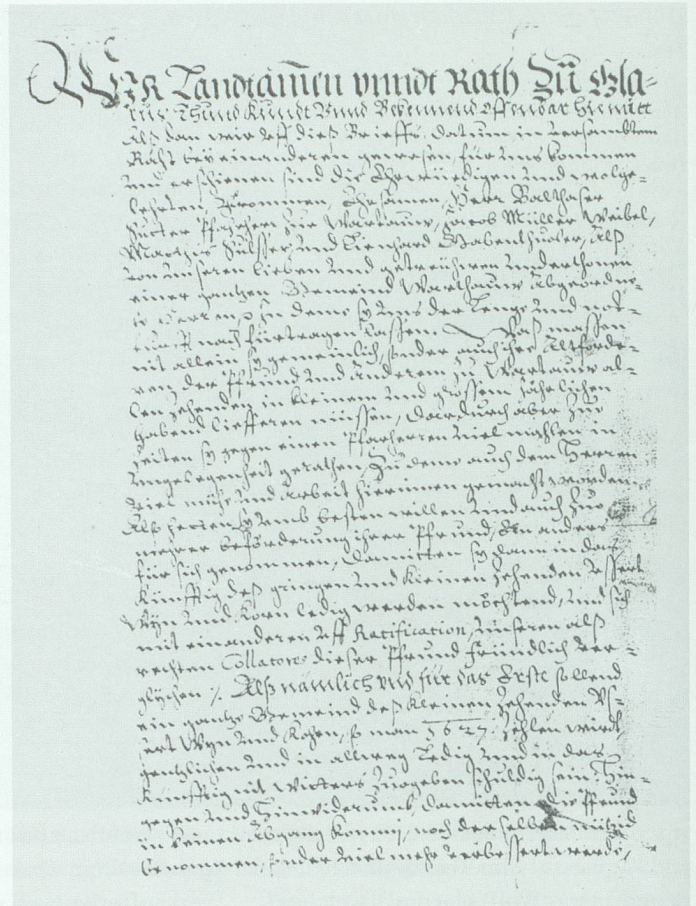 Wir Landtammen unndt Rath Zu Gla-
rus, Thund Kundt Unnd Bekennend offendar hiemitt
Alß dan wir uff dieß Brieffs datum in versambtem
Raht bey einanderen gewesen, für uns kommen
und erschienen sind die Ehrwürdigen und wolge-
lehrten, Frommen, Ehrsamen, Herr Balthaser
Sutter Pfahrherr zur Warthauw, Jacob Müller Weibel,
Marthis Sulsser, und Lienhard Gabenthuler, Alß
von unseren lieben und getreühwen underthonen
einer gantzen Gemeind Warthauw Abgeordne-
te in dem sy uns der Lenge und not-
nach fürtragen lassen. Waß massen
nit allein sy gemeinlich, sonder auch ihre Altforde-
ren der Pfrund und anderem zu Wartauw al-
len zehenden in kleinem und grossem Jährlichen
habend liefferen müssen, dardurch aber zuo
zeiten sy gegen einem Pfarherren viel mahlen in
ungelegenheit gerathen, Zu deme auch dem Herren
viel mühe und arbeit hierinnen gemacht worden.
Alß heten sy umb besten willen und auch zuo
mehrer beförderung ihrer Pfrund, Ein anders
für sich genommen, damitten sy dann in das
künfftig deß gringen und kleinen zehenden ussert
Wyn und Korn ledig werden möchtend, und sich
mit einanderen uff Ratification, unseren alß
rechten Collatores dieser Pfrund fründlich ver-
glychen /. Alß nämlich und für das Erste sollend
ein gantze Gemeind deß kleinen zehenden Us-
sert Wyn und Kohrn, so man 1627. zehlen wirdt,
gentzlichen und in allweg ledig und in das
künfftig nit witters zuogeben schuldig sein: Hin-
gegen und Hinwiderumb, damitten die Pfrund
in keinen Abgang kommi, noch der selben nützid
benommen, sonder viel mehr verbessert werde,